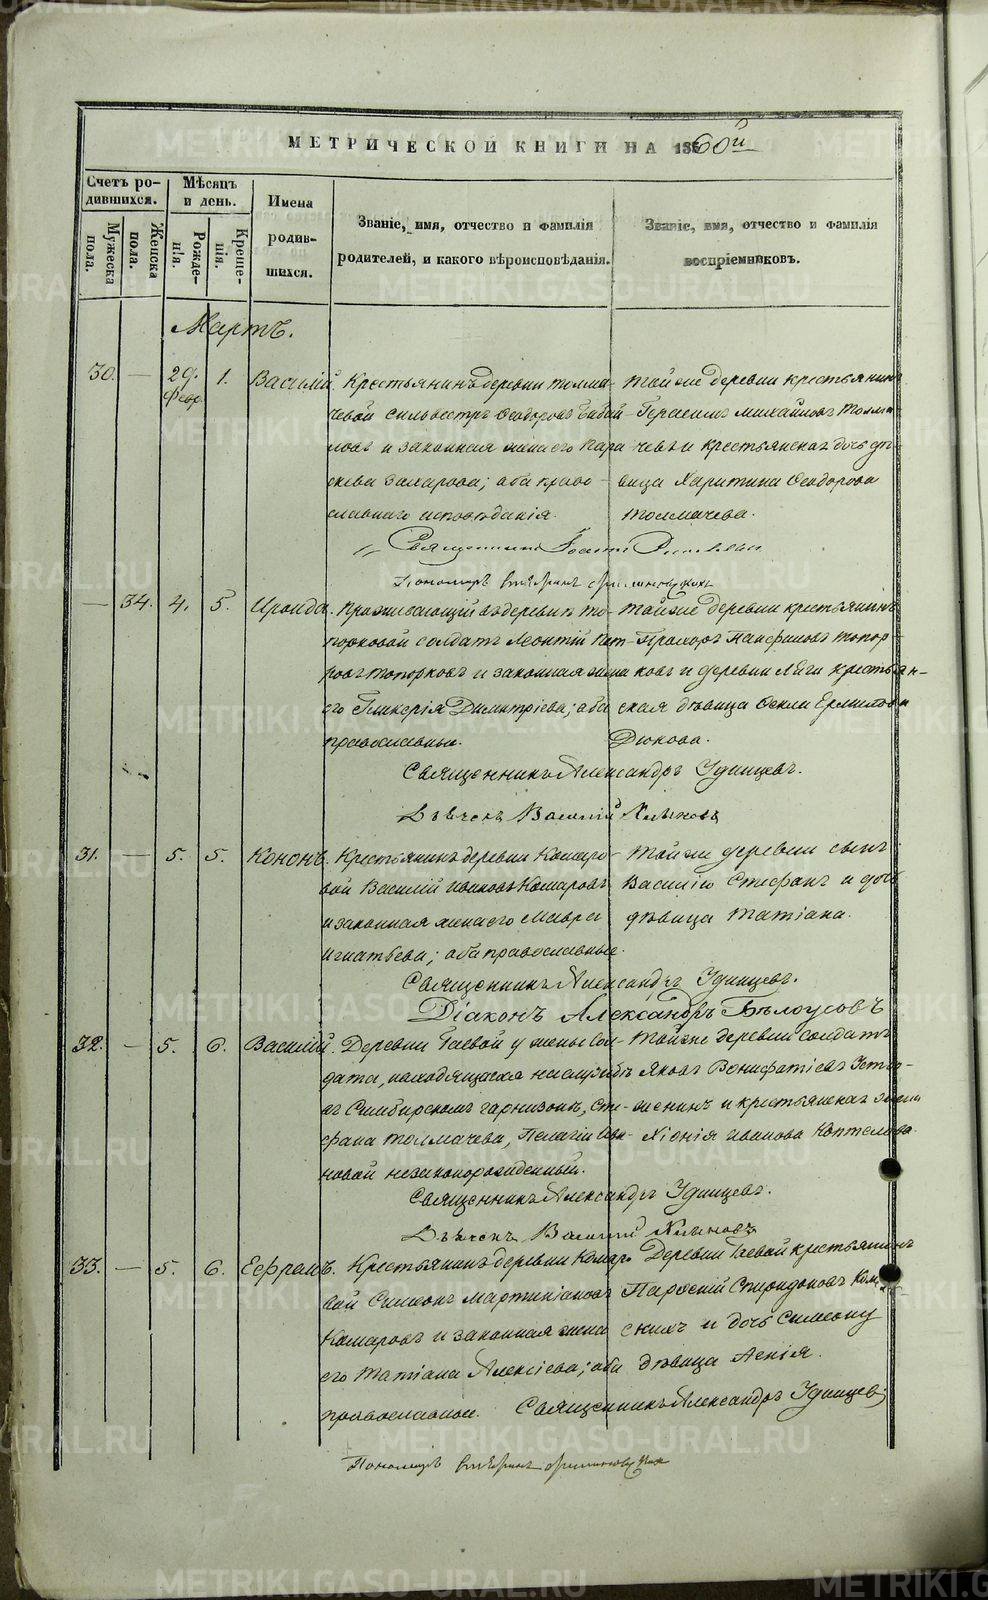 МЕТРИЧЕСКОЙ КНИГИ НА 1860й
Счетъ родившихся.
Мѣсяцъ и день.
Имена родившихся.
Званіе, имя, отчество и фамилія родителей, и какого вѣроисповѣданія.
Званіе, имя, отчество и фамилія воспріемниковъ.
Мужеска пола.
Женска пола.
Рожденія.
Крещенія.
Мартъ.
30. — 29. Февр. 1. Василій.
Крестьянинъ деревни Толма-
чевой Сильвестръ Ѳеодоровъ
и законная жена его Пара-
скева Захарова; оба право-
славнаго исповѣданія.
Той же деревни крестьянинъ
Герасимъ Михайловъ Толма-
чевъ и крестьянская дочь дѣ-
вица Харитина Ѳеодорова
Толмачева.
Священникъ Іоаннъ
Пономарь
— 34. 4. 5. Ираида.
Проживающій въ деревнѣ То-
порковой солдатъ Леонтій Пет-
ровъ Топорковъ и законная жена
его Гликерія Димитріева; оба
православные.
Той же деревни крестьянинъ
Панфиловъ Топор-
ковъ и деревни крестьян-
ская дѣвица Ѳекла Ермилова
Дюкова.
Священникъ Александръ Удинцевъ.
Дьячекъ Василій Хлыновъ
31. — 5. 5. Кононъ.
Крестьянинъ деревни Комаро-
вой Василій Ивановъ Комаровъ
и законная жена его Мавра
Игнатьева; оба православные.
Той же деревни сынъ
Василію Стефанъ и дочь
дѣвица Татіана.
Священникъ Александръ Удинцевъ.
Діаконъ Александръ Бѣлоусовъ
32. — 5. 6. Василій.
Деревни Гаевой у жены сол-
дата, находящагося на службѣ
въ Симбирскомъ гарнизонѣ, Сте-
фана Толмачева, Пелагіи Ива-
новой незаконорожденный.
Той же деревни солдатъ
Яковъ Вонифатіевъ Устю-
женинъ и крестьянская жена
Хіонія Иванова Коптелова.
Священникъ Александръ Удинцевъ.
Дьячекъ Василій Хлыновъ
33. — 5. 6. Ефремъ.
Крестьянинъ деревни Комаро-
вой Симеонъ Мартиніановъ
Комаровъ и законная жена
его Татіана Алексіева; оба
православные.
Деревни Гаевой крестьянинъ
Спиридоновъ
и дочь Симеону
дѣвица Ксенія.
Священникъ Александръ Удинцевъ
Пономарь
METRIKI.GASO-URAL.RU